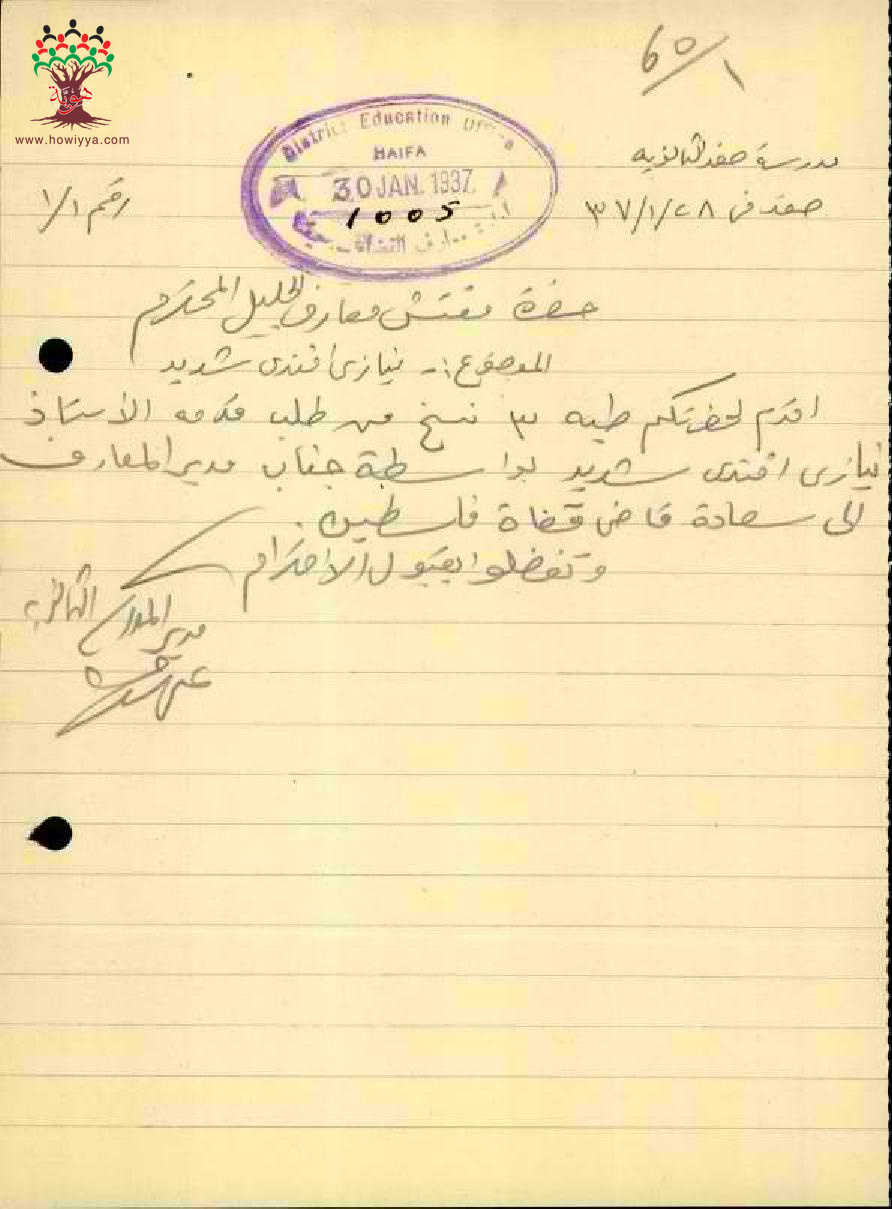 هوية
www.howiyya.com
65/1
District Education Office
HAIFA
30 JAN. 1937
1005
مدرسة صفد الثانويه
صفد في ٢٨/١/٣٧
رقم ١/١
حضرة مفتش معارف الجليل المحترم
الموضوع :- نيازي افندي شديد
اقدم لحضرتكم طيه ٣ نسخ من طلب قدمه الأستاذ
نيازي افندي شديد بواسطة جناب مدير المعارف
الى سعادة قاضي قضاة فلسطين .
وتفضلوا بقبول الاحترام
مدير المدرسة الثانوية